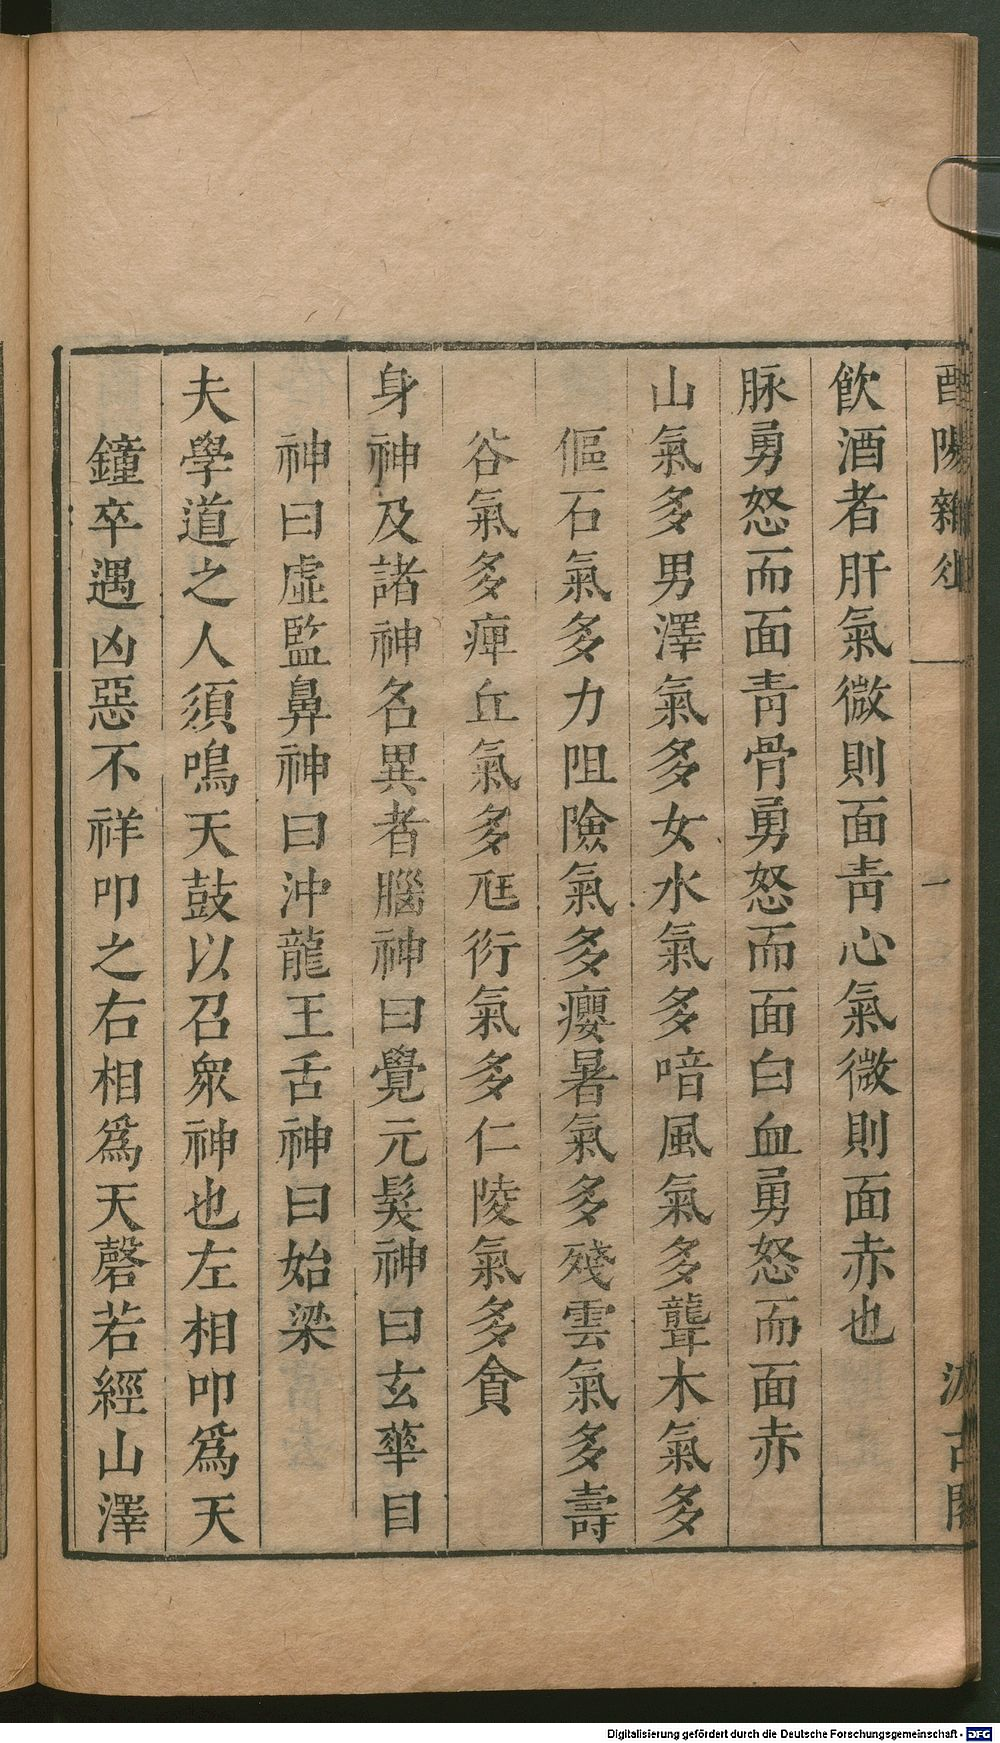 酉陽雜俎 一 汲古閣
飲酒者肝氣微則面靑心氣微則面赤也
脉勇怒而面靑骨勇怒而面白血勇怒而面赤
山氣多男澤氣多女水氣多喑風氣多聾木氣多
傴石氣多力阻險氣多癭暑氣多殘雲氣多壽
谷氣多痺丘氣多尫衍氣多仁陵氣多貪
身神及諸神名異者腦神曰覺元髮神曰玄華目
神曰虛監鼻神曰沖龍王舌神曰始梁
夫學道之人須鳴天鼓以召衆神也左相叩爲天
鐘卒遇凶惡不祥叩之右相爲天磬若經山澤
Digitalisierung gefördert durch die Deutsche Forschungsgemeinschaft - DFG